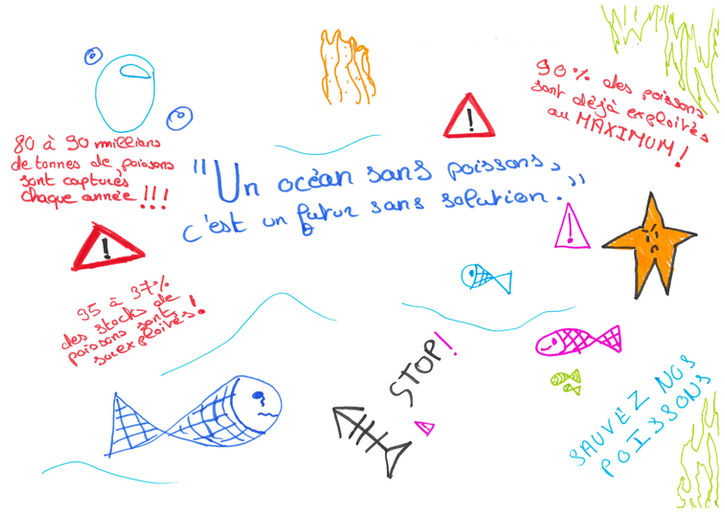 90% des poissons
sont déjà exploités
au MAXIMUM !
80 à 90 millions
de tonnes de poissons
sont capturés
chaque année !!!
"Un océan sans poissons,
c'est un futur sans solution."
!
!
!
35 à 37%
des stocks de
poissons sont
surexploités !
STOP!
!
SAUVEZ NOS
POISSONS